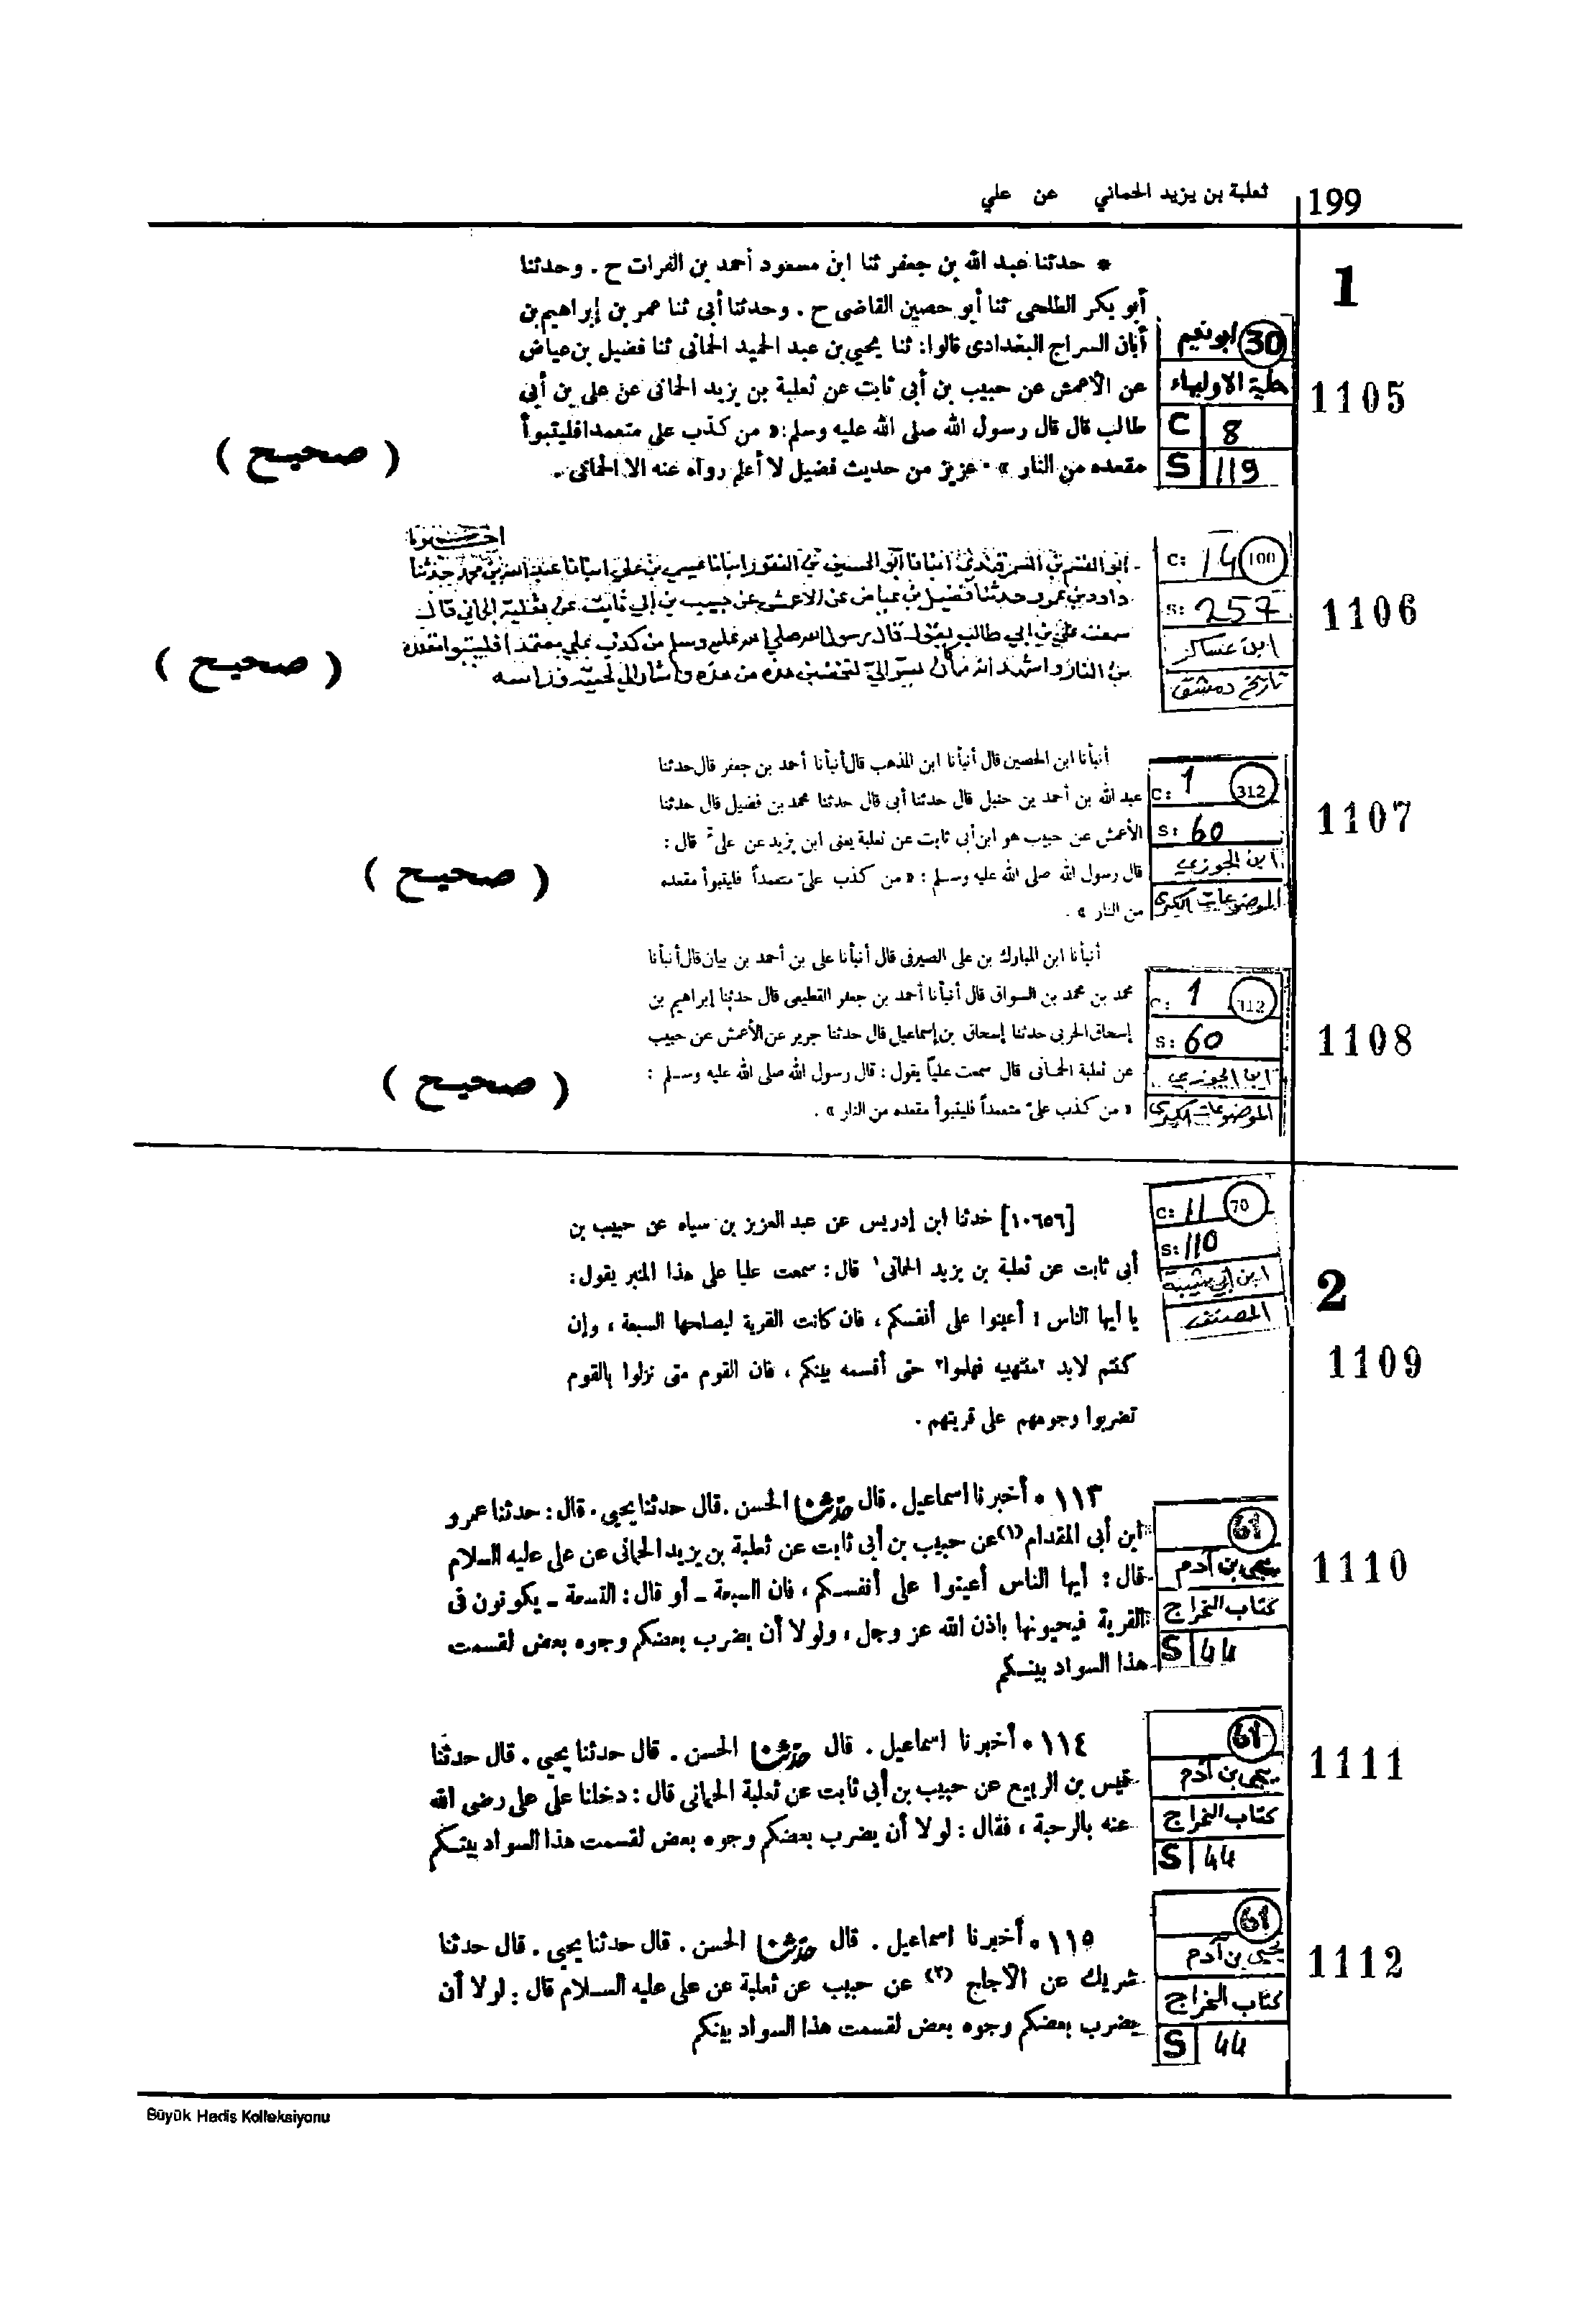 199
ثعلبة بن يزيد الحماني عن علي
1
* حدثنا عبد الله بن جعفر ثنا ابن مسعود أحمد بن الفرات ح . وحدثنا
أبو بكر الطلحى ثنا أبو حصين القاضى ح . وحدثنا أبى ثنا عمر بن إبراهيم بن
أبان السراج البغدادى قالوا: ثنا يحيى بن عبد الحميد الحمانى ثنا فضيل بن عياض
عن الأعمش عن حبيب بن أبى ثابت عن ثعلبة بن يزيد الحمانى عن على بن أبى
طالب قال قال رسول الله صلى الله عليه وسلم: « من كذب على متعمدا فليتبوأ
مقعده من النار » . عزيز من حديث فضيل لا أعلم رواه عنه الا الحمانى .
( صحيح )
30 ابو نعيم
حلية الاولياء
C 8
S 119
1105
اخبرنا
ابو القسم بن السمرقندي انبانا ابو الحسين بن النقور انبانا عيسى بن علي انبانا عبد الله بن محمد حدثنا
داود بن عمرو حدثنا فضيل بن عياض عن الاعمش عن حبيب بن ابي ثابت عن ثعلبة الحماني قال
سمعت علي بن ابي طالب يقول قال رسول الله صلى الله عليه وسلم من كذب علي متعمدا فليتبوا مقعده
من النار واشهد انه كان يسر الي لتخضبن هذه من هذه واشار الى لحيته وراسه
( صحيح )
C: 14 100
S: 257
ابن عساكر
تاريخ دمشق
1106
أنبأنا ابن الحصين قال أنبأنا ابن المذهب قال أنبأنا أحمد بن جعفر قال حدثنا
عبد الله بن أحمد بن حنبل قال حدثنا أبى قال حدثنا محمد بن فضيل قال حدثنا
الأعمش عن حبيب هو ابن أبى ثابت عن ثعلبة يعنى ابن يزيد عن على قال :
قال رسول الله صلى الله عليه وسلم : « من كذب علىّ متعمداً فليتبوأ مقعده
من النار » .
( صحيح )
C: 1 312
S: 60
ابن الجوزي
الموضوعات الكبرى
1107
أنبأنا ابن المبارك بن على الصيرفى قال أنبأنا على بن أحمد بن بيان قال أنبأنا
محمد بن محمد بن السواق قال أنبأنا أحمد بن جعفر القطيعى قال حدثنا إبراهيم بن
إسحاق الحربى حدثنا إسحاق بن إسماعيل قال حدثنا جرير عن الأعمش عن حبيب
عن ثعلبة الحمانى قال سمعت علياً يقول : قال رسول الله صلى الله عليه وسلم :
« من كذب علىّ متعمداً فليتبوأ مقعده من النار » .
( صحيح )
C: 1 312
S: 60
ابن الجوزي
الموضوعات الكبرى
1108
2
[١٠٦٥٦] حدثنا ابن إدريس عن عبد العزيز بن سياه عن حبيب بن
أبى ثابت عن ثعلبة بن يزيد الحمانى١ قال : سمعت عليا على هذا المنبر يقول :
يا أيها الناس ! أعينوا على أنفسكم ، فان كانت القرية ليصلحها السبعة ، وإن
كنتم لابد ٢منتهيه فهلموا٢ حتى أقسمه بينكم ، فان القوم متى نزلوا بالقوم
تضربوا وجوههم على قريتهم .
C: 11 70
S: 110
ابن ابي شيبة
المصنف
1109
١١٣ * أخبرنا اسماعيل . قال حدثنا الحسن . قال حدثنا يحيى . قال : حدثنا عمرو
ابن أبى المقدام (١) عن حبيب بن أبى ثابت عن ثعلبة بن يزيد الحمانى عن على عليه السلام
قال : أيها الناس أعينوا على أنفسكم ، فان السبعة ـ أو قال : التسعة ـ يكونون فى
القرية فيحيونها باذن الله عز وجل ، ولولا أن يضرب بعضكم وجوه بعض لقسمت
هذا السواد بينكم
61
يحيى بن آدم
كتاب الخراج
S 44
1110
١١٤ * أخبرنا اسماعيل . قال حدثنا الحسن . قال حدثنا يحيى . قال حدثنا
قيس بن الربيع عن حبيب بن أبى ثابت عن ثعلبة الحمانى قال : دخلنا على على رضى الله
عنه بالرحبة ، فقال : لولا أن يضرب بعضكم وجوه بعض لقسمت هذا السواد بينكم
61
يحيى بن آدم
كتاب الخراج
S 44
1111
١١٥ * أخبرنا اسماعيل . قال حدثنا الحسن . قال حدثنا يحيى . قال حدثنا
شريك عن الأجلح (٢) عن حبيب عن ثعلبة عن على عليه السلام قال : لولا أن
يضرب بعضكم وجوه بعض لقسمت هذا السواد بينكم
61
يحيى بن آدم
كتاب الخراج
S 44
1112
Büyük Hadis Kolleksiyonu